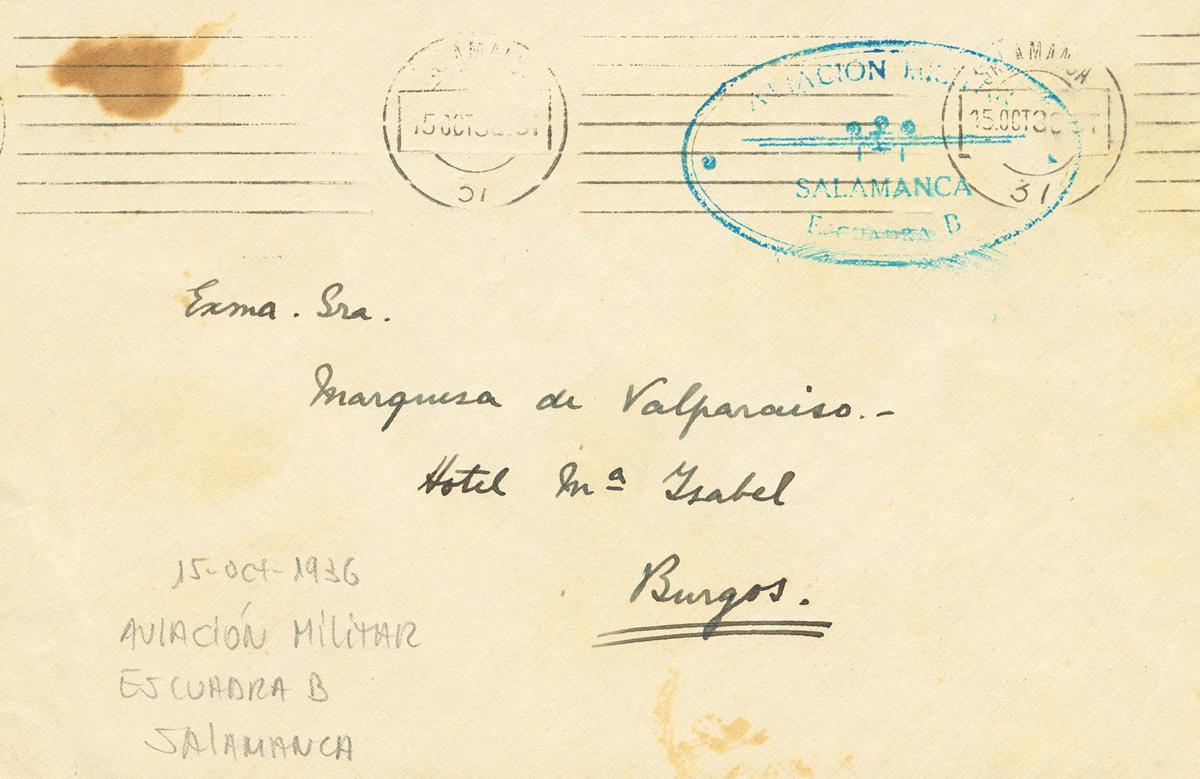 SALAMANCA
15 OCT 36
31
AVIACION MILITAR
SALAMANCA
ESCUADRA B
SALAMANCA
15.OCT 36
31
Exma. Sra.
Marquesa de Valparaiso.-
Hotel Mª Isabel
Burgos.
15-OCT-1936
AVIACIÓN MILITAR
ESCUADRA B
SALAMANCA